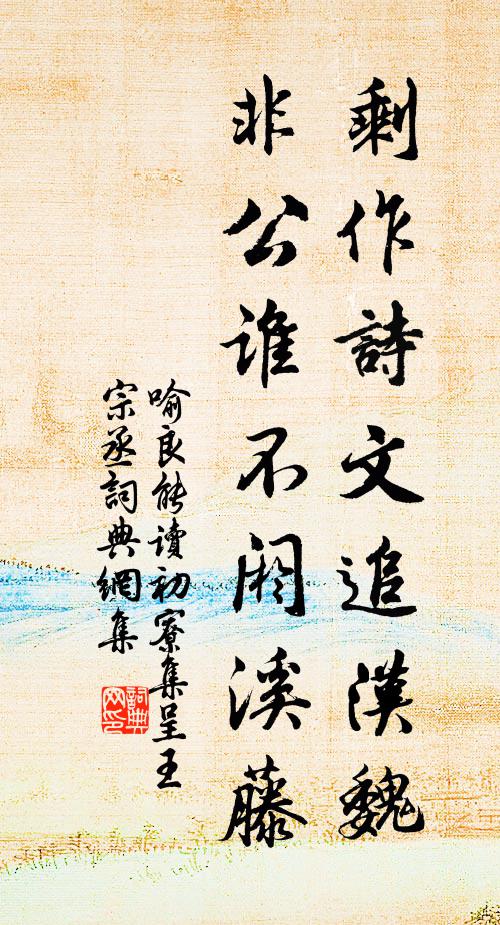 剩作詩文追漢魏
非公誰不閟溪藤
喻良能讀初寮集呈王
宗丞詞典網集
詞典
网印